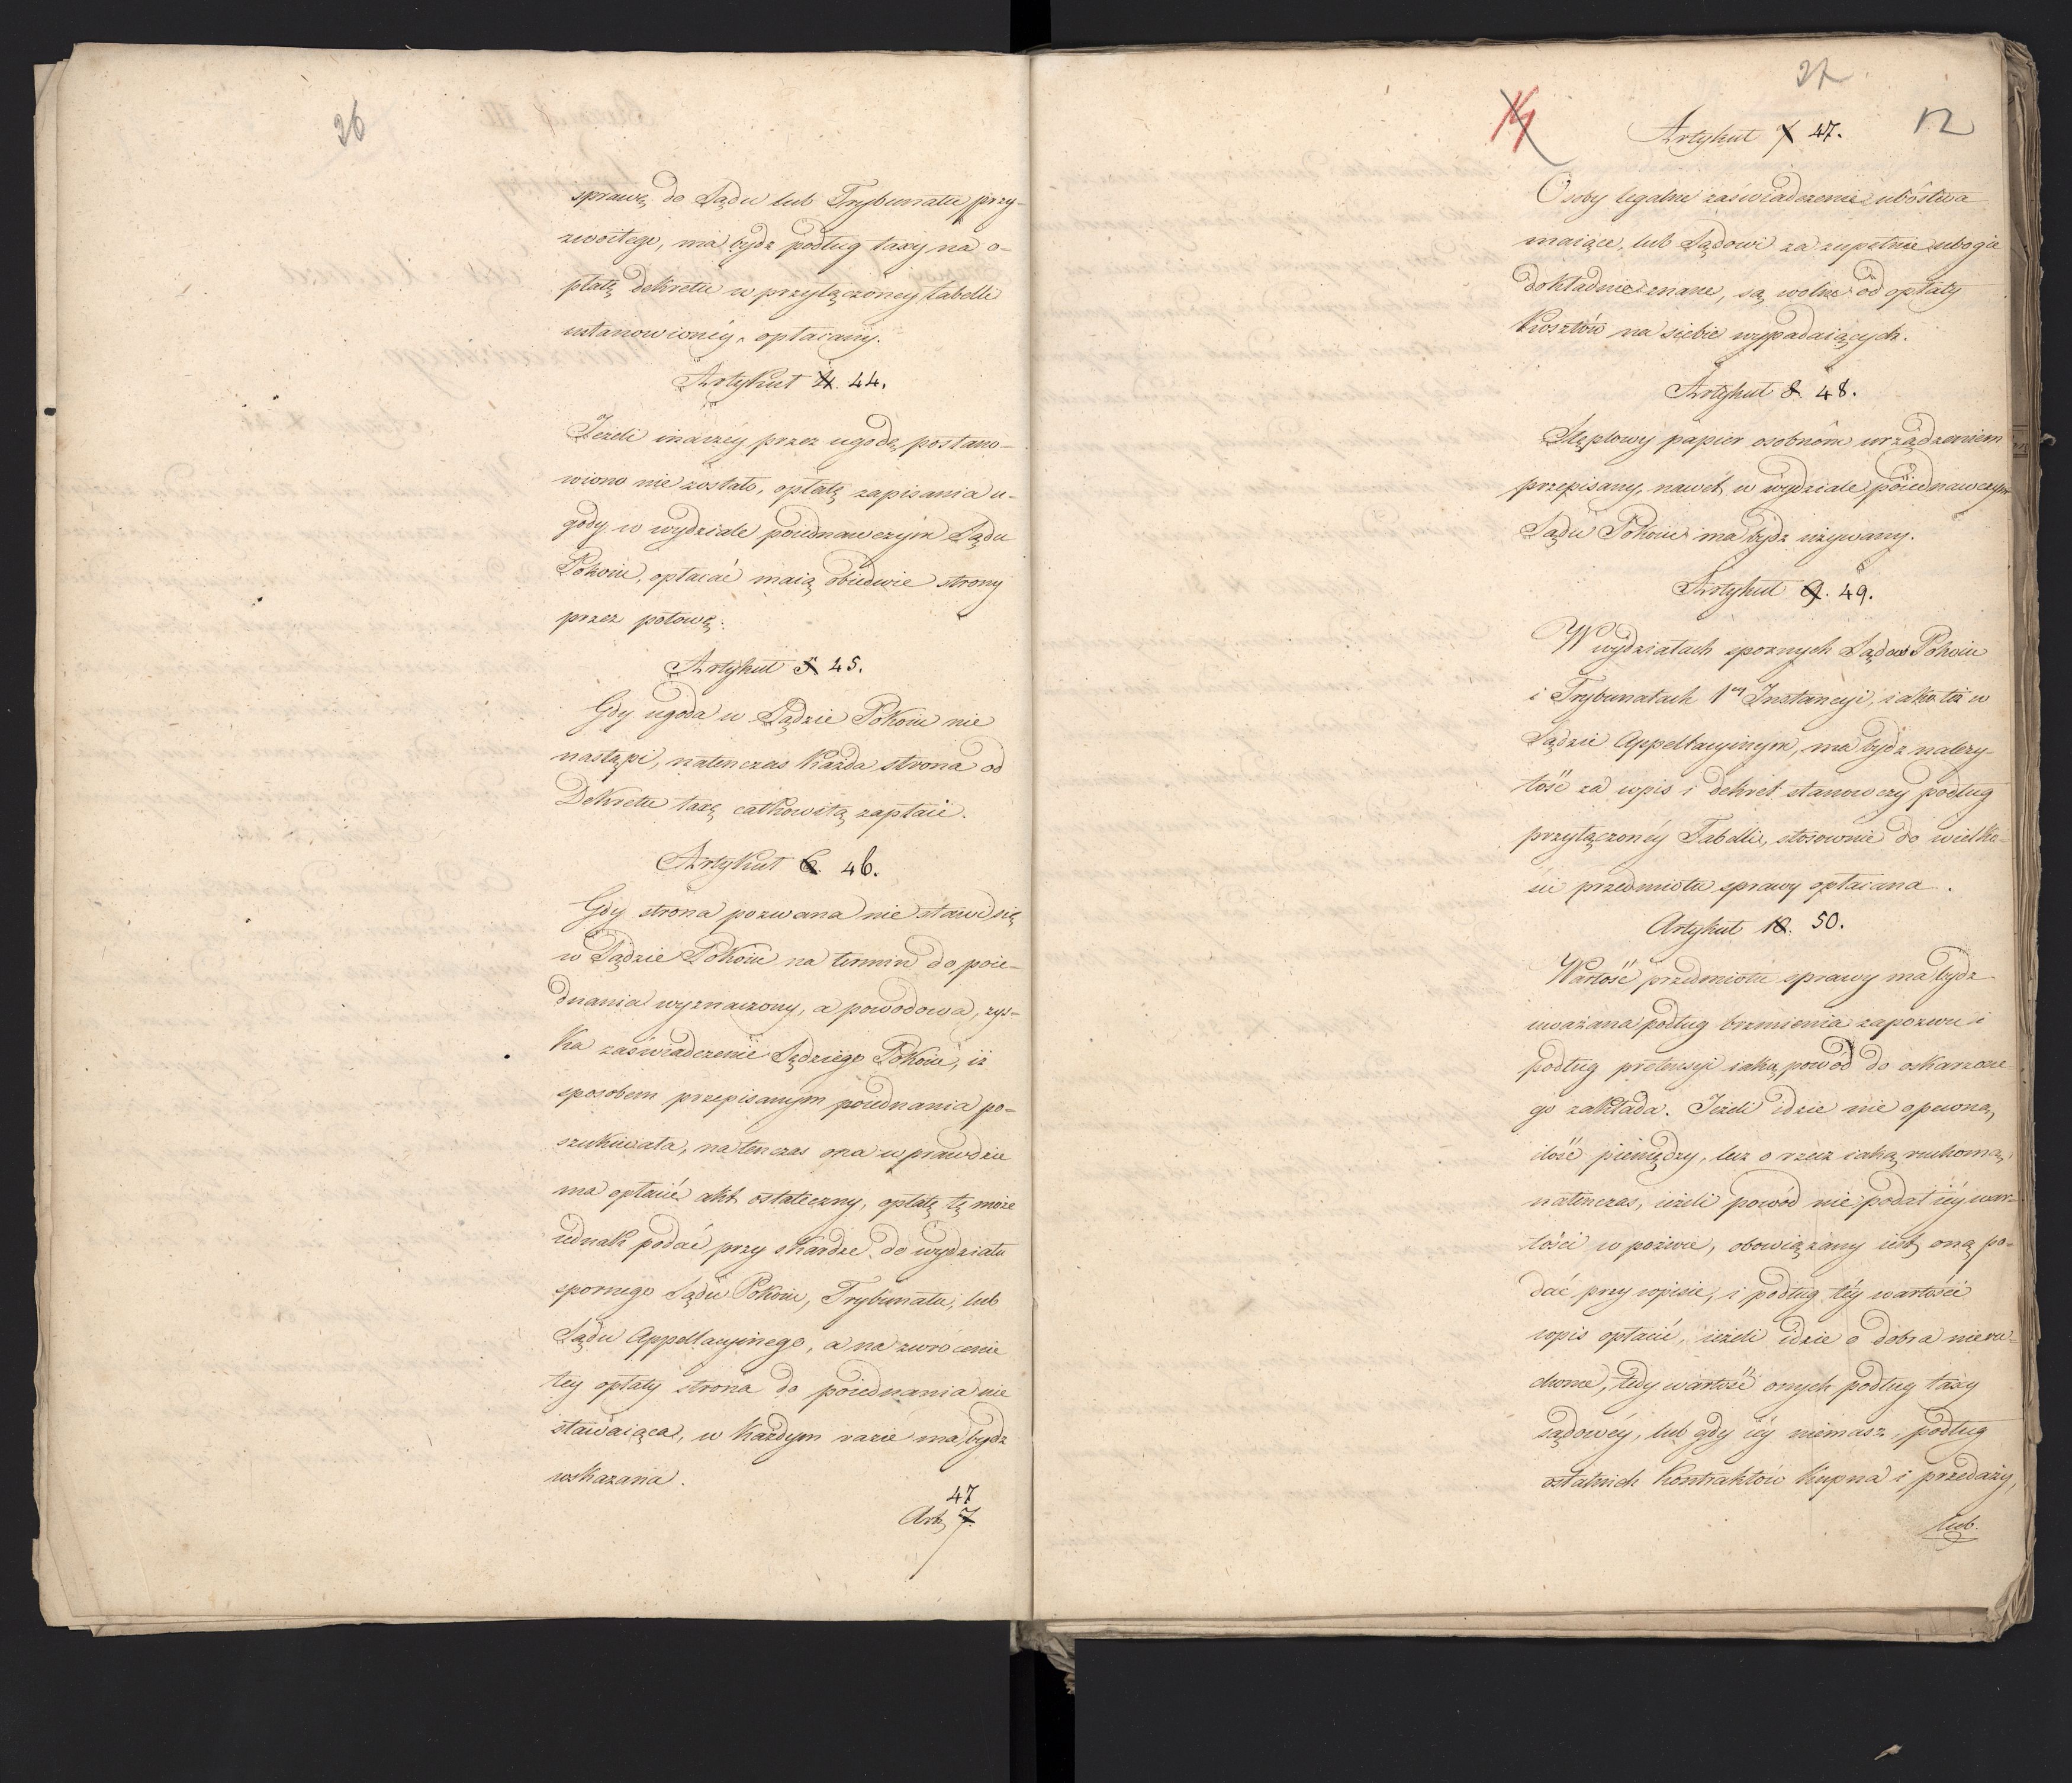 26
sprawę do Sądu lub Trybunału przy-
zwoitego, ma bydź podług taxy na o-
płatę dekretu w przyłączoney tabelli
ustanowionéy, opłacany.
Artykuł 4. 44.
Jeżeli inaczéy przez ugodę postano-
wiono nie zostało, opłatę zapisania u-
gody w wydziale poiednawczym Sądu
Pokoiu, opłacać maią obiedwie strony
przez połowę.
Artykuł 5 45.
Gdy ugoda w Sądzie Pokoiu nie
nastąpi, natenczas każda strona od
Dekretu taxę całkowitą zapłaci.
Artykuł 6. 46.
Gdy strona pozwana nie stawi się
w Sądzie Pokoiu na termin do poie-
dnania wyznaczony, a powodowa, zys-
ka zaświadczenie Sędziego Pokoiu, iż
sposobem przepisanym poiednania po-
szukiwała, natenczas ona wprawdzie
ma opłacić akt ostateczny, opłatę tę może
iednak podać przy skardze do wydziału
spornego Sądu Pokoiu, Trybunału, lub
Sądu Appellacyinego, a na zwrócenie
tey opłaty strona do poiednania nie
stawaiąca, w każdym razie ma bydź
wskazana.
47
Art. 7.
27
12
Artykuł 7 47.
Osoby legalne zaświadczenie ubóstwa
maiące, lub Sądowi za zupełnie ubogie
dokładnie znane, są wolne od opłaty
kosztów na siebie wypadaiących.
Artykuł 8. 48.
Stęplowy papier osobnóm urządzeniem
przepisany, nawet w wydziale poiednawczym
Sądu Pokoiu ma bydź używany.
Artykuł 9. 49.
W wydziałach spornych Sądów Pokoiu
i Trybunałach 1ey Instancyi, iako też w
Sądzie Appellacyinym, ma bydź należy-
tość za wpis i dekret stanowczy podług
przyłączonéy Tabelli, stosownie do wielko-
ści przedmiotu sprawy opłacana.
Artykuł 10. 50.
Wartość przedmiotu sprawy ma bydź
uważana podług brzmienia zapozwu i
podług pretensyi iaką powód do oskarzone
go zakłada. Jeżeli idzie nie o pewną
ilość pieniędzy, lecz o rzecz iaką ruchomą,
natenczas, ieżeli powód nie podał iéy war-
tości w pozwie, obowiązany iest oną po-
dać przy wpisie, i podług téy wartości
wpis opłacić, ieżeli idzie o dobra nieru-
chome, tedy wartość onych podług taxy
sądowéy, lub gdy iéy niemasz, podług
ostatnich kontraktów kupna i przedaży,
lub.